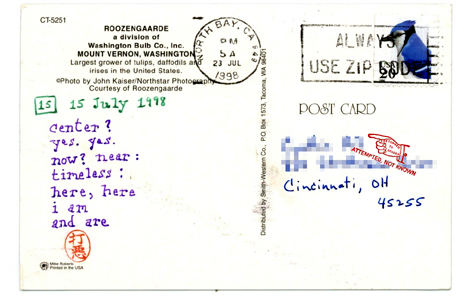 CT-5251
ROOZENGAARDE
a division of
Washington Bulb Co., Inc.
MOUNT VERNON, WASHINGTON
Largest grower of tulips, daffodils and
irises in the United States.
©Photo by John Kaiser/Northstar Photography
Courtesy of Roozengaarde
15 15 July 1998
center?
yes. yes.
now? near:
timeless!
here, here
i am
and are
Mike Roberts
Printed in the USA
Distributed by Smith-Western Co., P.O. Box 1573, Tacoma, WA 98401
NORTH BAY, CA
PM
23 JUL
1998
ALWAYS
USE ZIP CODE
20
POST CARD
ATTEMPTED, NOT KNOWN
Cincinnati, OH
45255